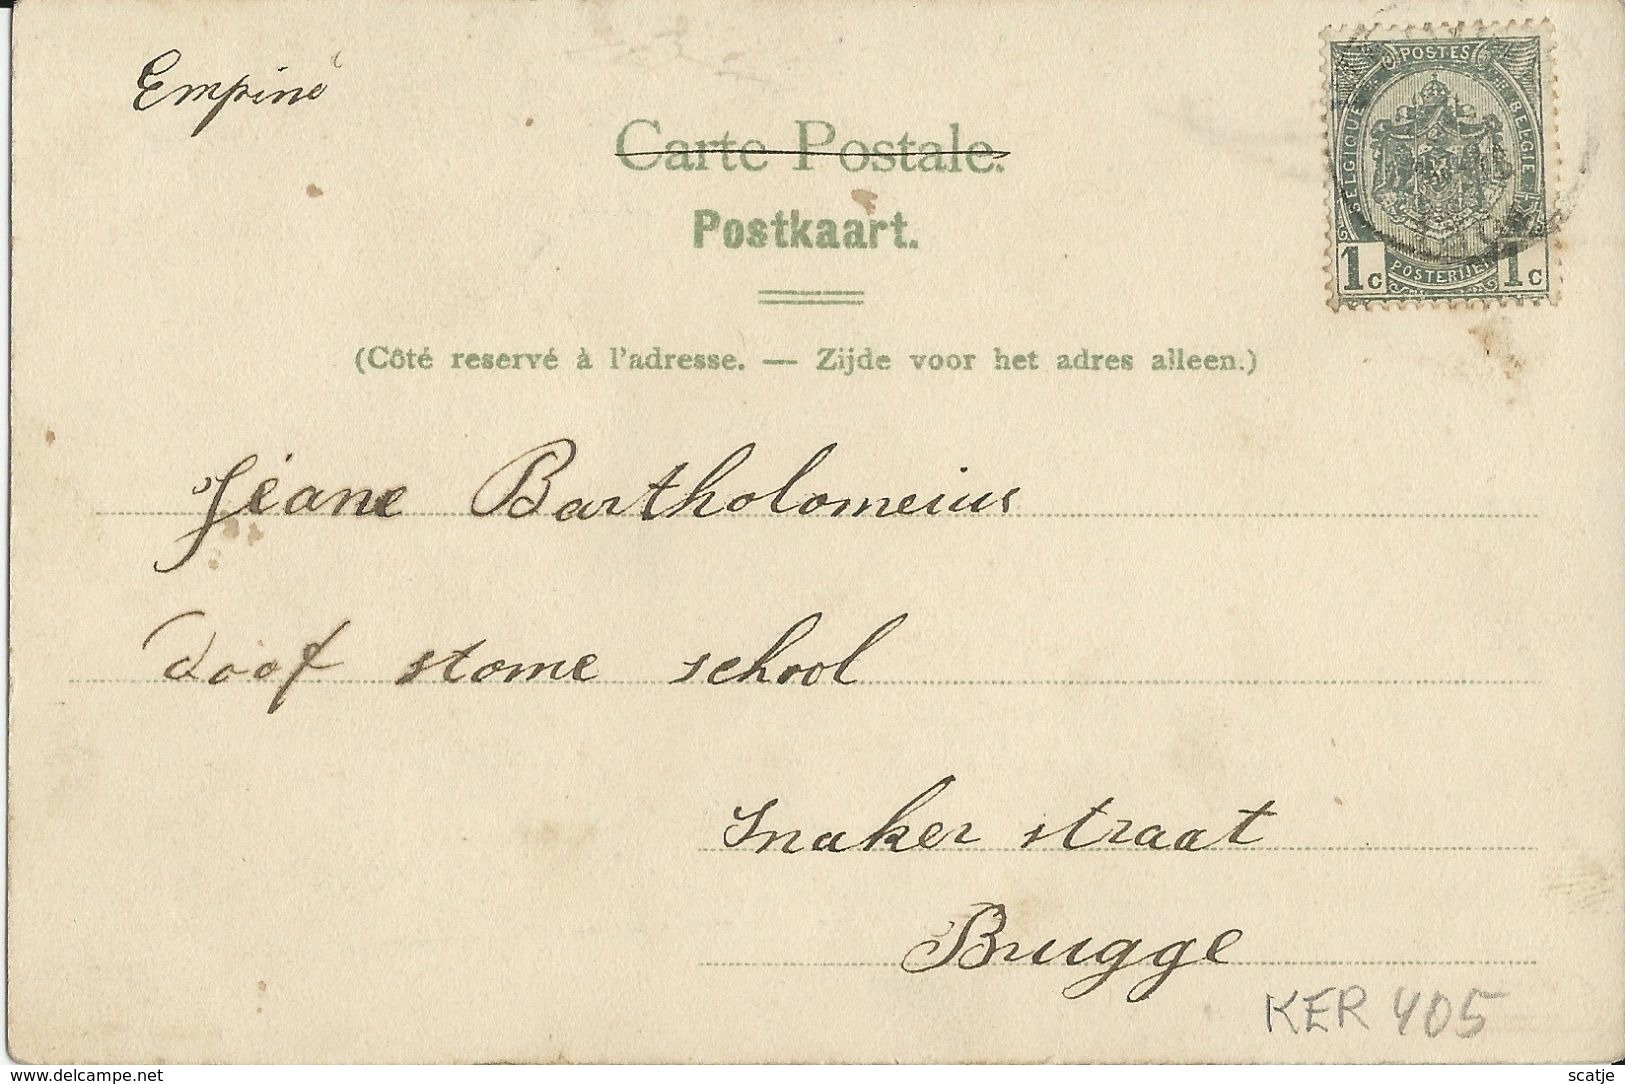 Empiné
Carte Postale.
Postkaart.
(Côté reservé à l'adresse. — Zijde voor het adres alleen.)
POSTES
BELGIQUE
BELGIE
1c POSTERIJEN 1c
Jéane Bartholomeius
doof stome school
Snaker straat
Brugge
KER 405
delcampe.net
scatje